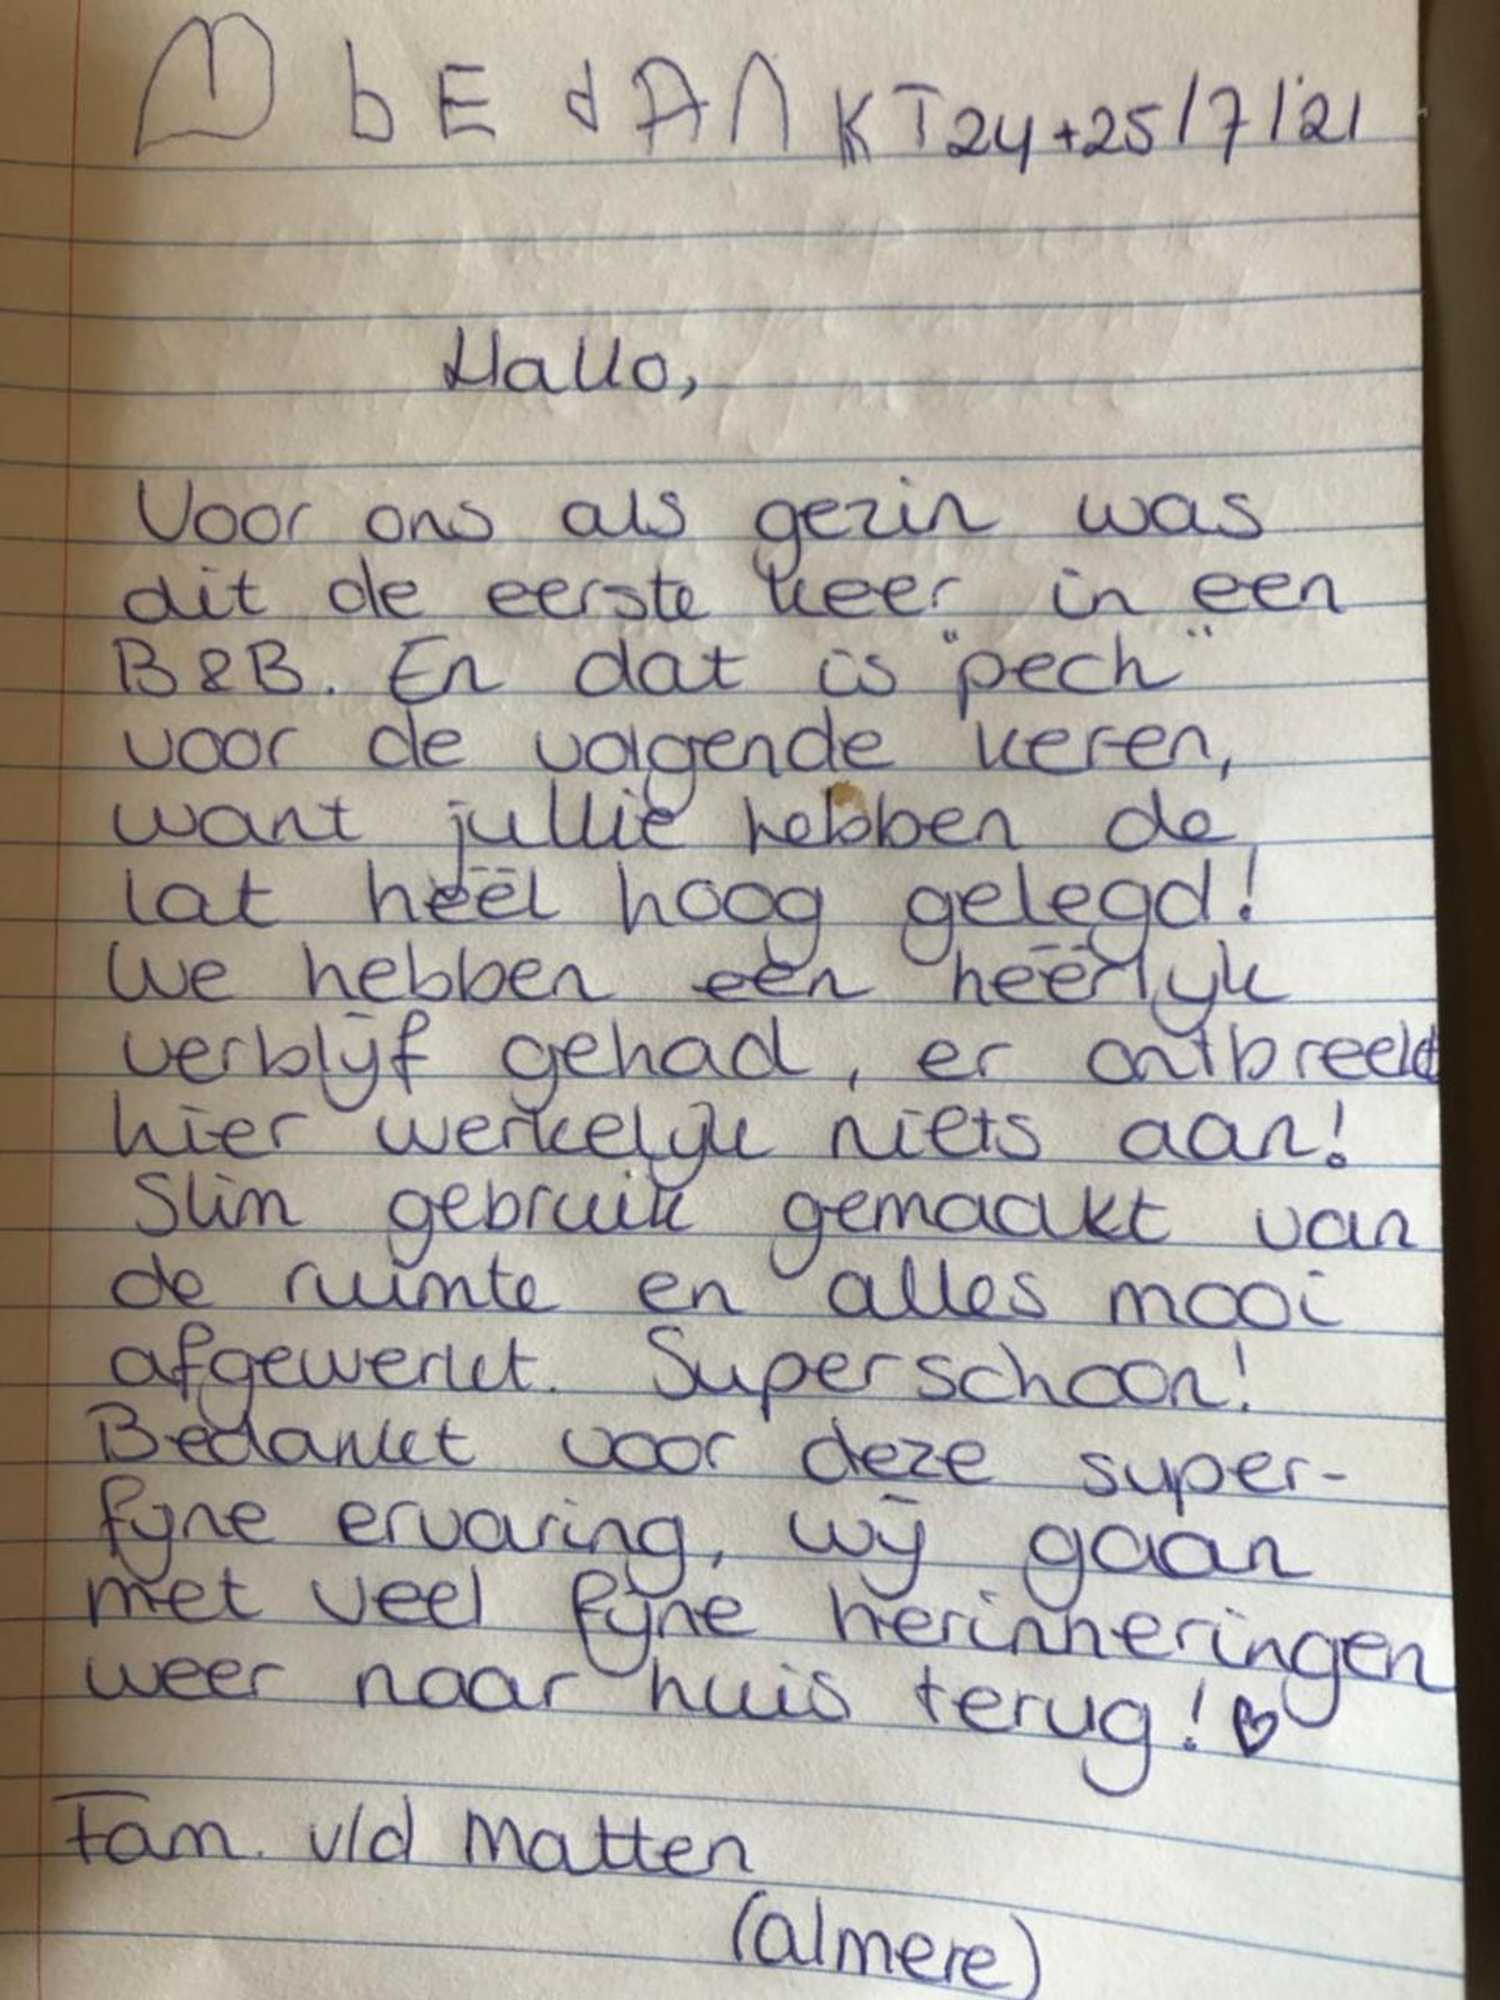 bEdANKT 24+25/7/21
Hallo,
Voor ons als gezin was
dit de eerste keer in een
B&B. En dat is "pech"
voor de volgende keren,
want jullie hebben de
lat héél hoog gelegd!
We hebben een heerlijk
verblijf gehad, er ontbreekt
hier werkelijk niets aan!
Slim gebruik gemaakt van
de ruimte en alles mooi
afgewerkt. Superschoon!
Bedankt voor deze super-
fijne ervaring, wij gaan
met veel fijne herinneringen
weer naar huis terug! ♡
Fam. v/d Matten
(almere)